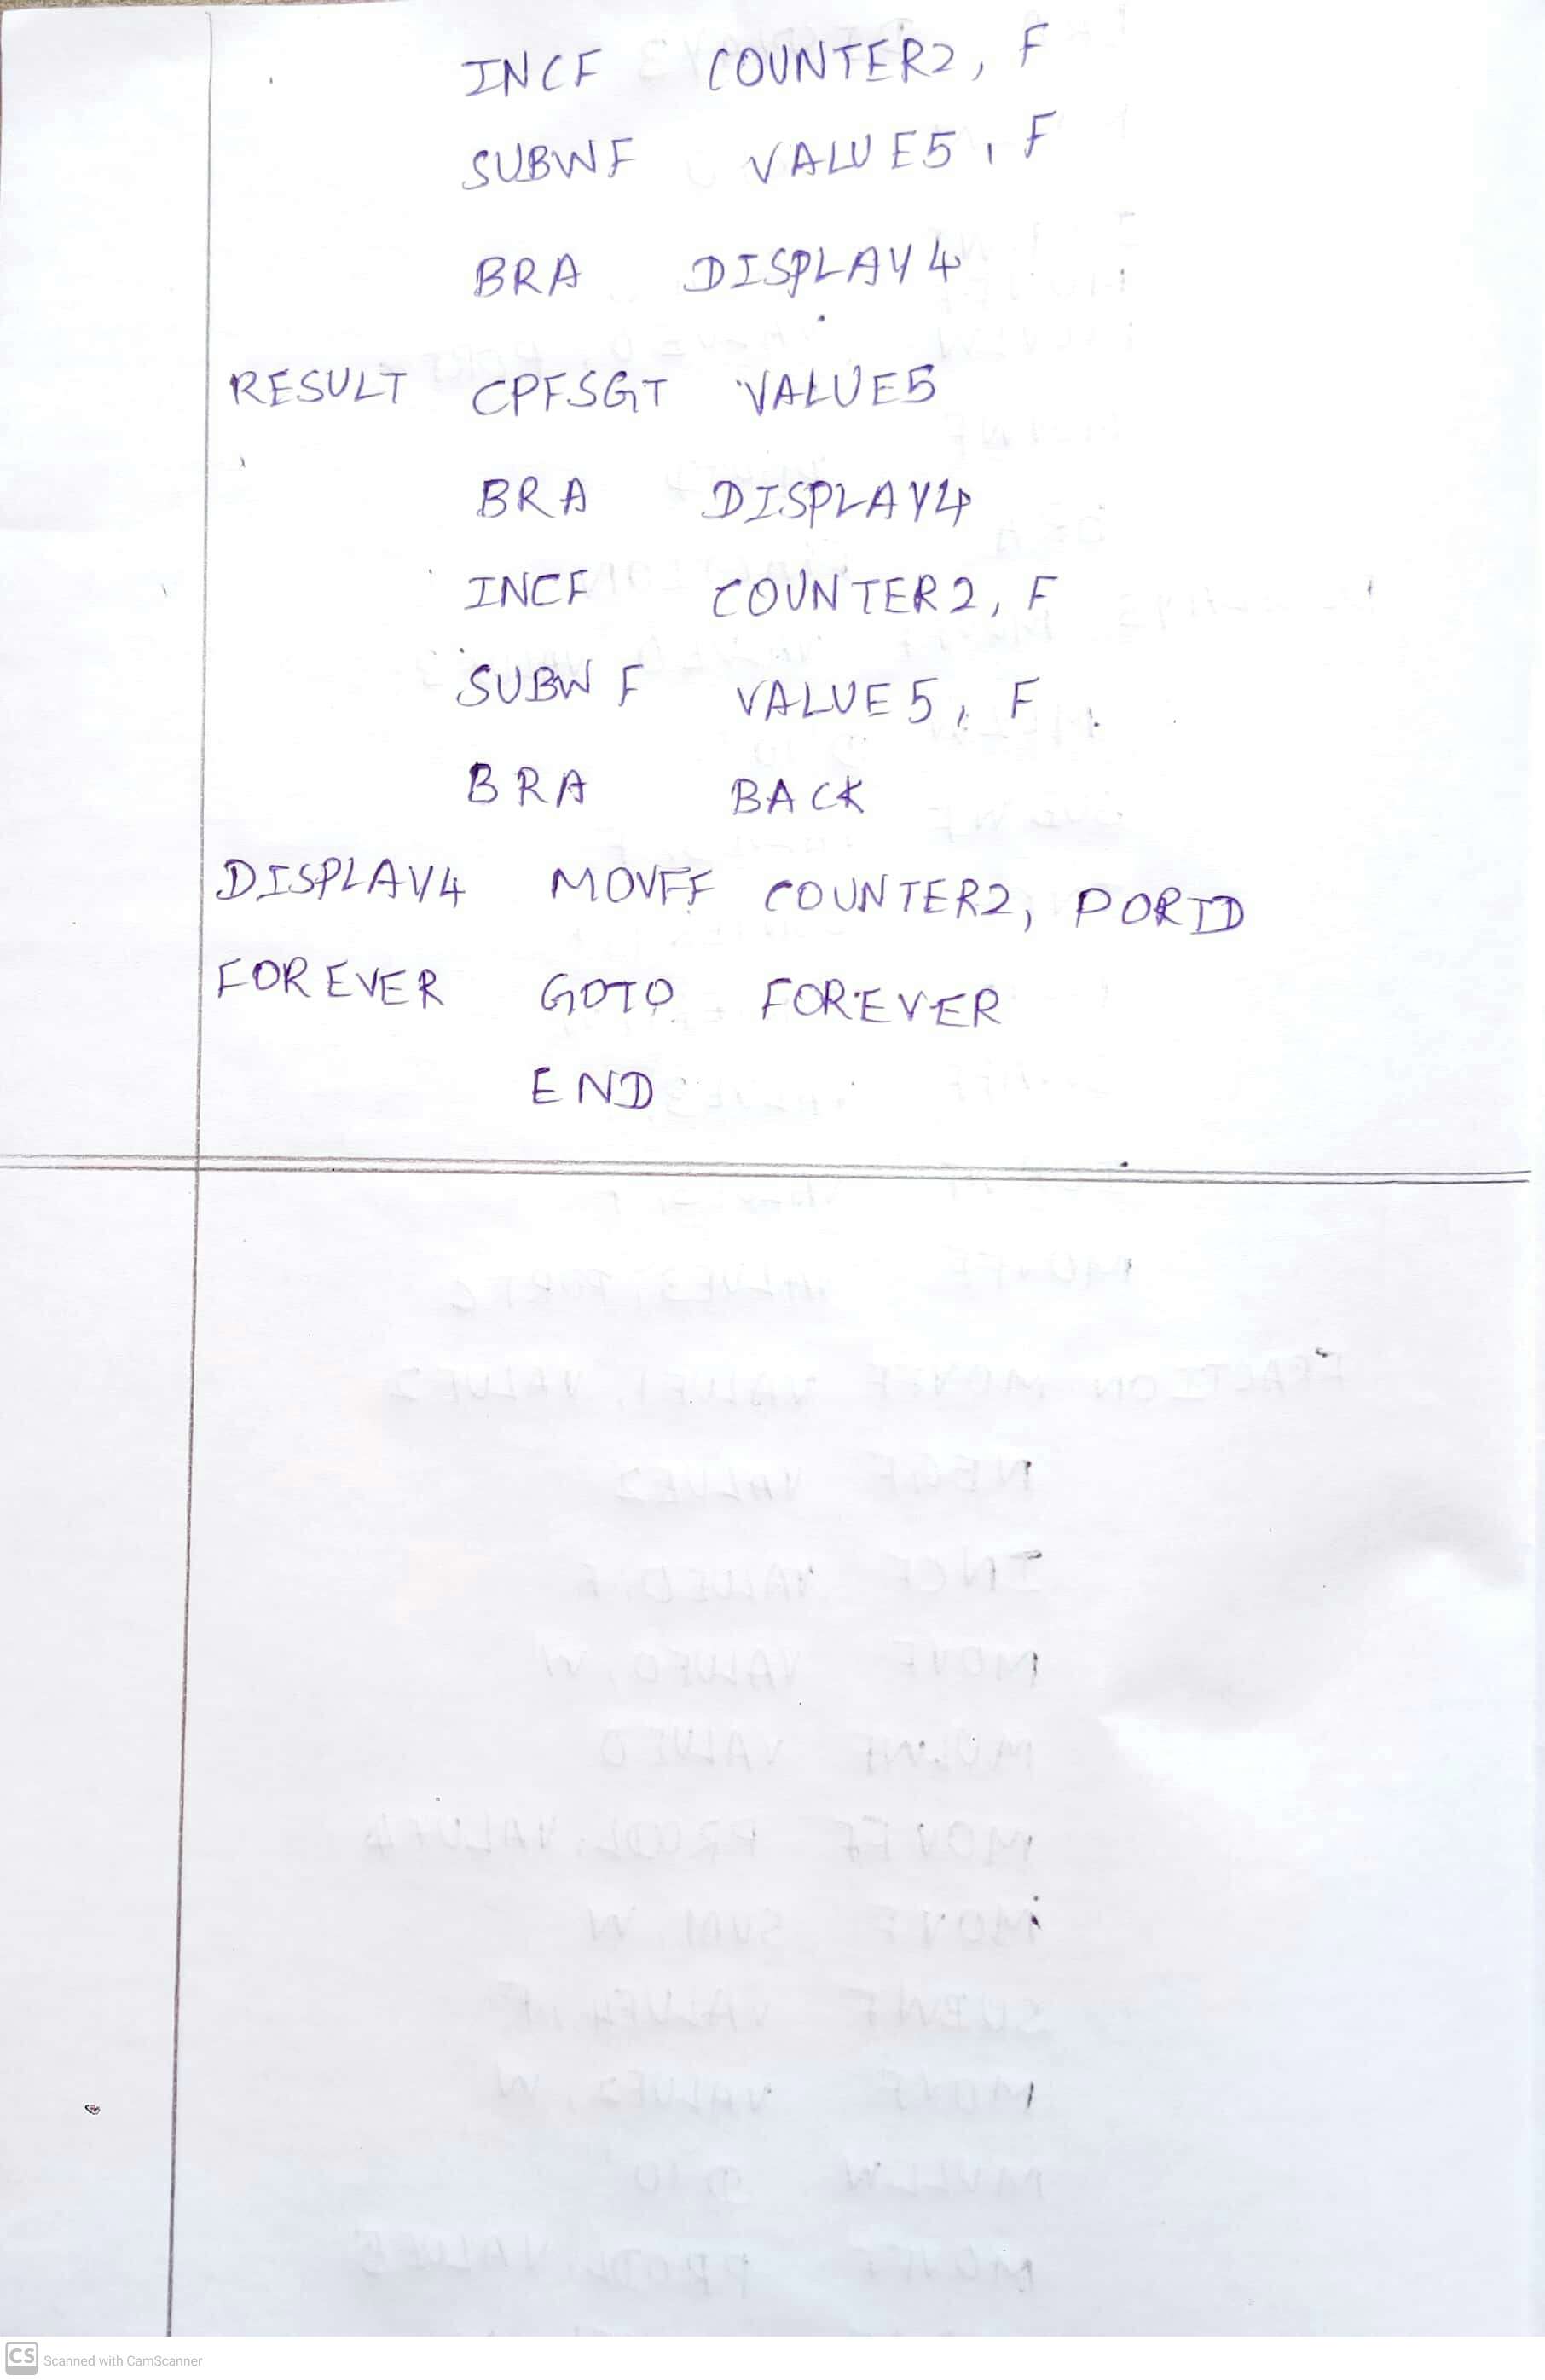 INCF COUNTER2, F
SUBWF VALUE5, F
BRA DISPLAY4
RESULT CPFSGT VALUE5
BRA DISPLAY4
INCF COUNTER2, F
SUBWF VALUE5, F
BRA BACK
DISPLAY4 MOVFF COUNTER2, PORTD
FOREVER GOTO FOREVER
END
CS Scanned with CamScanner